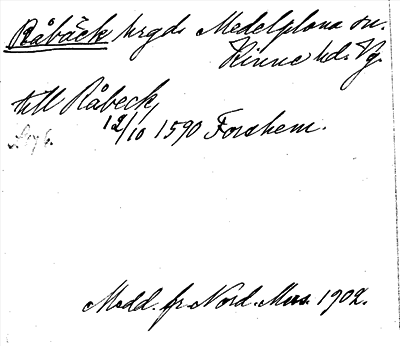 Råbäck hrgd. Medelplana sn.
Kinne hd. Vg.
till Råbeck,
12/10 1590 Forshem.
Medd. fr Nord. Mus. 1902.